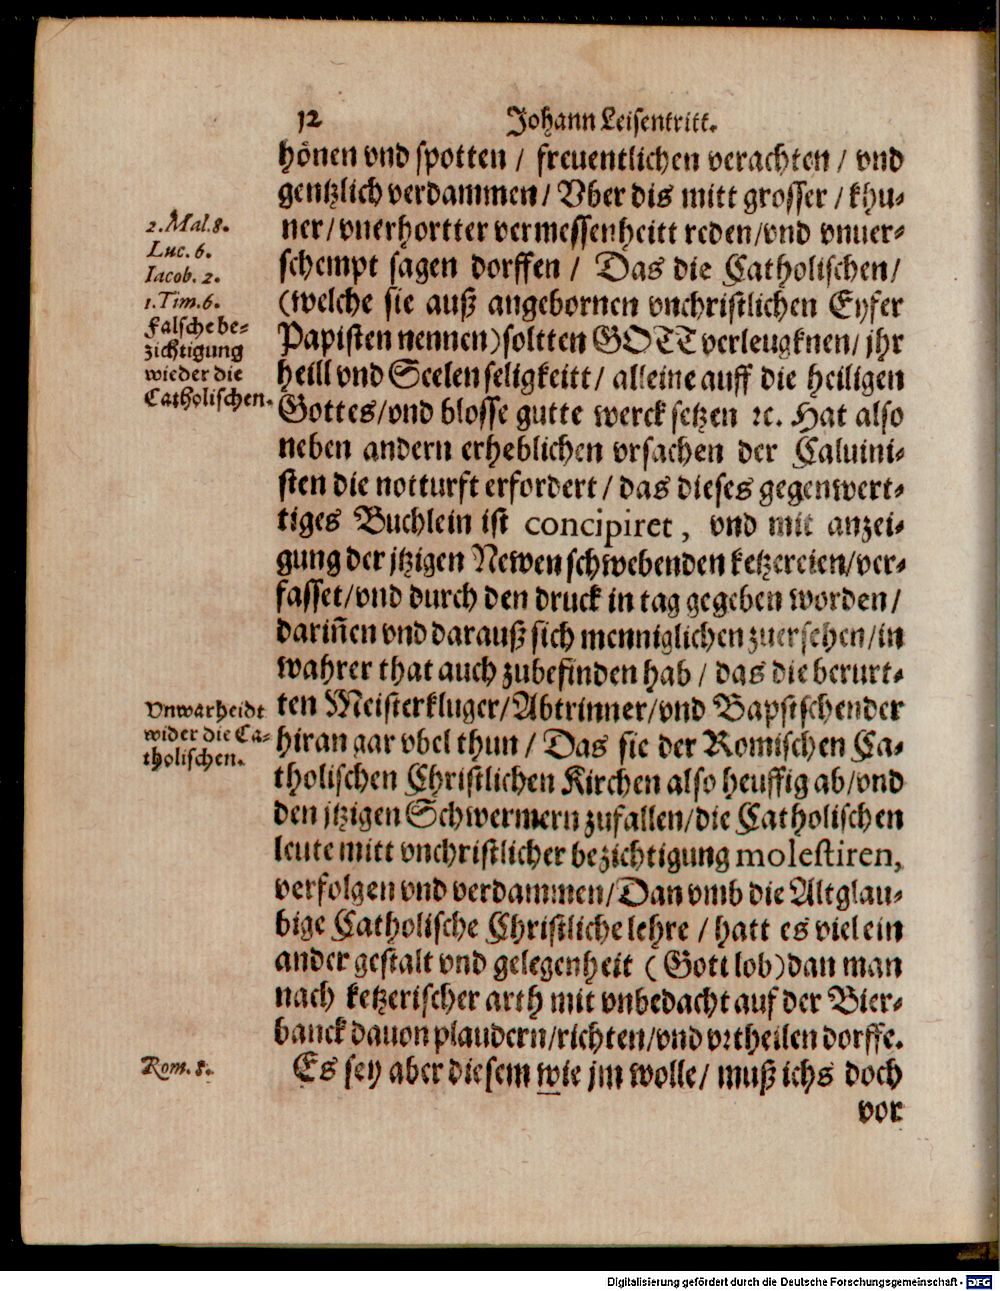 12
Johann Leisentritt.
hönen vnd spotten / freuentlichen verachten / vnd
gentzlich verdammen / Vber dis mitt grosser / khu-
ner / vnerhortter vermessenheitt reden / vnd vnuer-
schempt sagen dorffen / Das die Catholischen /
(welche sie auß angebornen vnchristlichen Eyfer
Papisten nennen) soltten GOTT verleugknen / jhr
heill vnd Seelen seligkeitt / alleine auff die heiligen
Gottes / vnd blosse gutte werck setzen ꝛc. Hat also
neben andern erheblichen vrsachen der Caluini-
sten die notturft erfordert / das dieses gegenwert-
tiges Buchlein ist concipiret, vnd mit anzei-
gung der jtzigen Newen schwebenden ketzereien / ver-
fasset / vnd durch den druck in tag gegeben worden /
dariñen vnd darauß sich menniglichen zuersehen / in
wahrer that auch zubefinden hab / das die berurt-
ten Meisterkluger / Abtrinner / vnd Bapstschender
hiran gar vbel thun / Das sie der Romischen Ca-
tholischen Christlichen Kirchen also heuffig ab / vnd
den jtzigen Schwermern zufallen / die Catholischen
leute mitt vnchristlicher bezichtigung molestiren,
verfolgen vnd verdammen / Dan vmb die Altglau-
bige Catholische Christliche lehre / hatt es viel ein
ander gestalt vnd gelegenheit ( Gott lob) dan man
nach ketzerischer arth mit vnbedacht auf der Bier-
banck dauon plaudern / richten / vnd vrtheilen dorffe.
Es sey aber diesem wie jm wolle / muß ichs doch
vor
2. Mal. 8.
Luc. 6.
Iacob. 2.
1. Tim. 6.
Falsche be-
zichtigung
wieder die
Catholischen.
Vnwarheidt
wider die Ca-
tholischen.
Rom. 8.
Digitalisierung gefördert durch die Deutsche Forschungsgemeinschaft - DFG